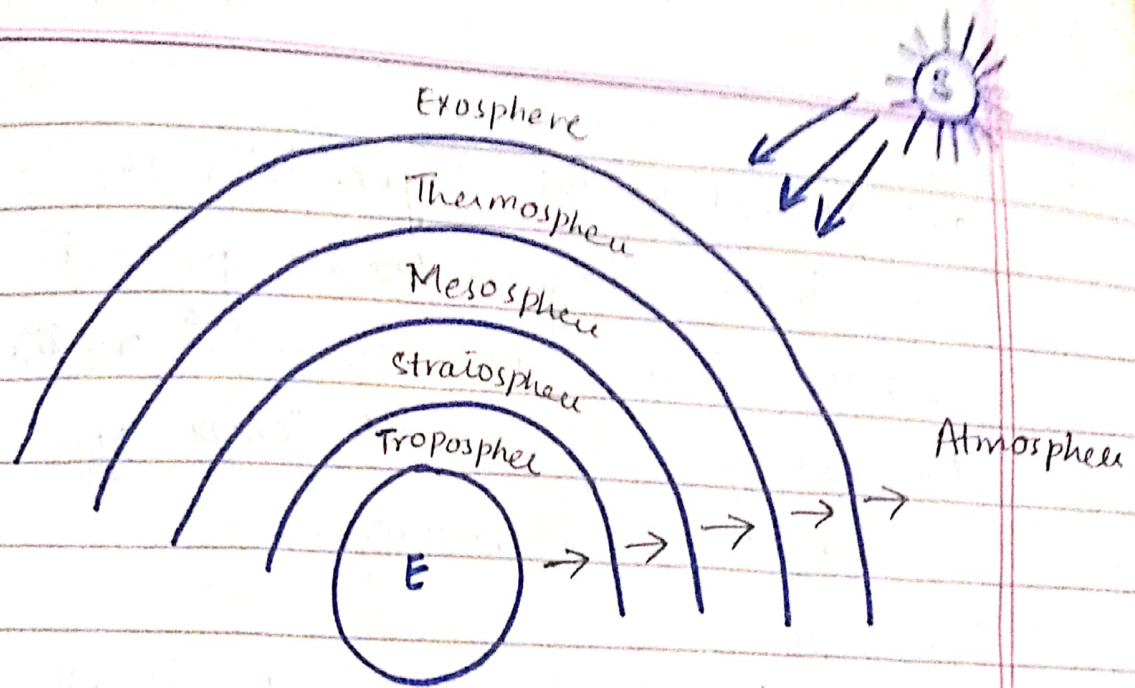 S
Exosphere
Thermosphere
Mesosphere
Stratosphere
Troposphere
Atmosphere
E